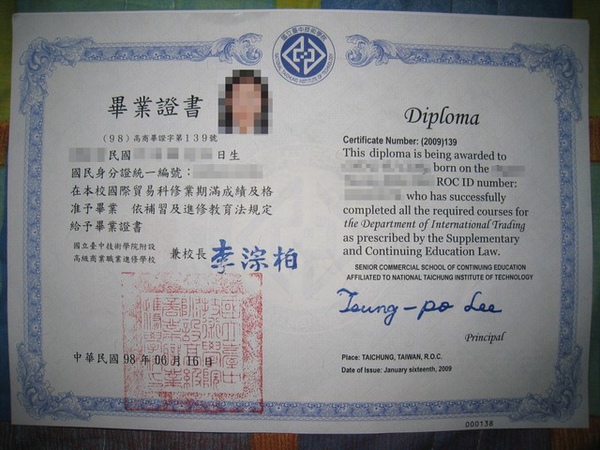 國立臺中技術學院
NATIONAL TAICHUNG INSTITUTE OF TECHNOLOGY
畢業證書
(98)高商畢證字第139號
民國 日生
國民身分證統一編號:
在本校國際貿易科修業期滿成績及格
准予畢業 依補習及進修教育法規定
給予畢業證書
國立臺中技術學院附設
高級商業職業進修學校
兼校長 李淙柏
中華民國98年06月16日
Diploma
Certificate Number: (2009)139
This diploma is being awarded to
born on the
ROC ID number:
who has successfully
completed all the required courses for
the Department of International Trading
as prescribed by the Supplementary
and Continuing Education Law.
SENIOR COMMERCIAL SCHOOL OF CONTINUING EDUCATION
AFFILIATED TO NATIONAL TAICHUNG INSTITUTE OF TECHNOLOGY
Tsung-po Lee
Principal
Place: TAICHUNG, TAIWAN, R.O.C.
Date of Issue: January sixteenth, 2009
000138